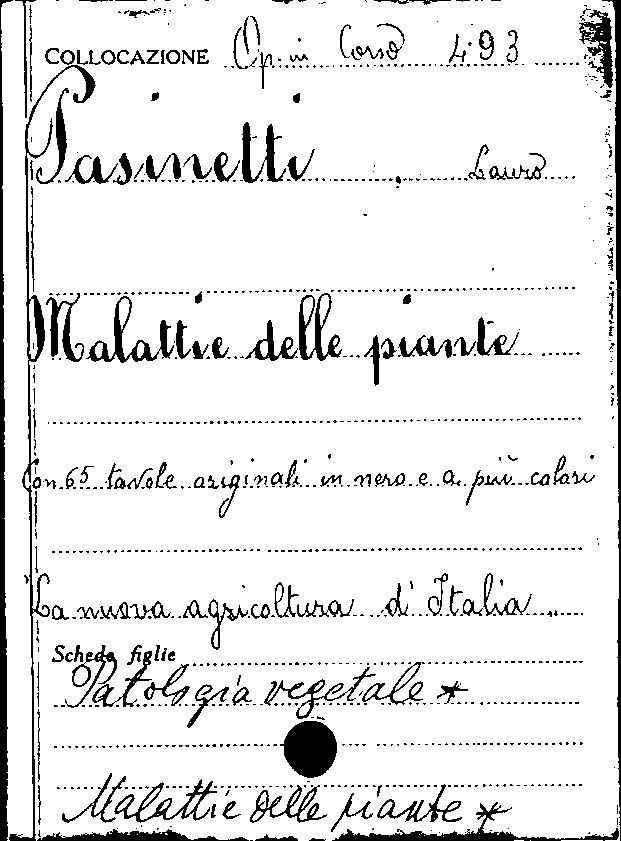 COLLOCAZIONE Op. in Corso 4.93
Pasinetti, Lauro
Malattie delle piante
Con 65 tavole originali in nero e a più colori
"La nuova agricoltura d'Italia"
Schede figlie
Patologia vegetale *
Malattie delle piante *